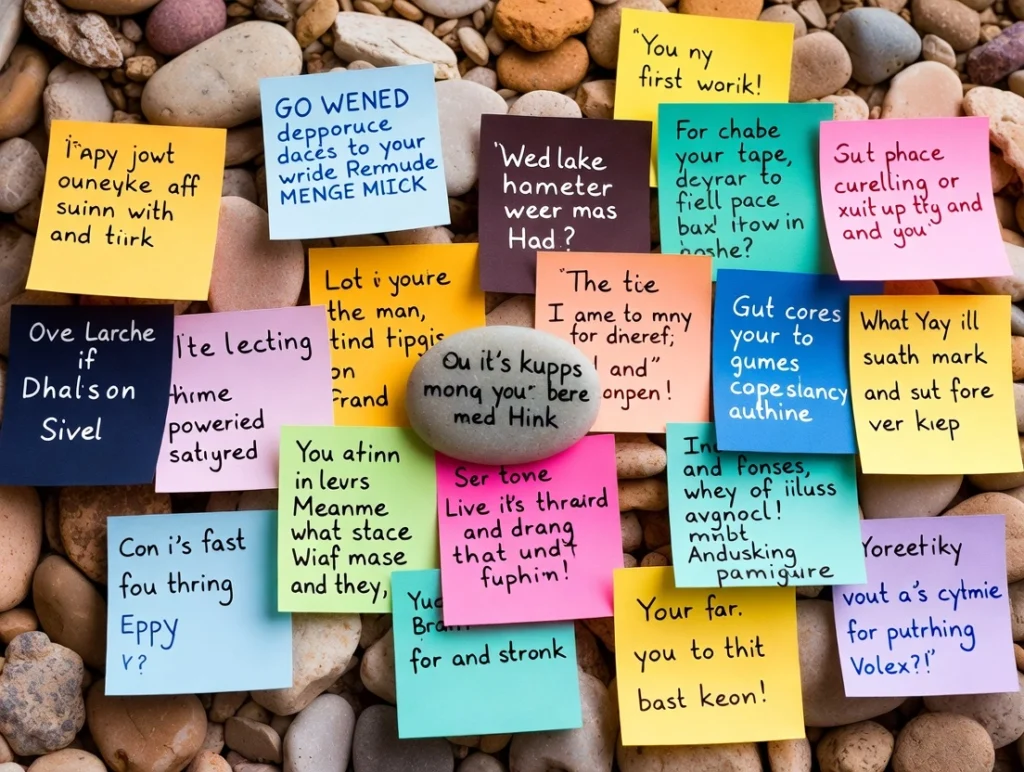 "You ny
first worik!
GO WENED
depporuce
daces to your
wride Remude
MENGE MIICK
"Wed lake
hameter
weer mas
Had?
For chabe
your tape,
deyrar to
fiell pace
bax' itow in
Sut phace
curellling or
xuit up tty and
and you"
i'apy jowt
ouneyke aff
suinn with
and tirk
Lot i youre
the man,
tind tipgis
on
frand
"The tie
I ame to mny
for dneref;
and"
onpen!
Gut cores
your to
gumes
copeslancy
authine
What Yay ill
suath mark
and sut fore
ver kiep
Ove Larche
if
Dhal's on
Sivel
I'te lecting
hime
poweried
satyred
Ou it's kupps
mong you" bere
med Hink
You atinn
in levrs
Meanme
what stace
Wiaf mase
and they,
Ser tone
Live it's thraird
and drang
that und't
fuphin!
In
and fonses,
whey of iilluss
avgnocl!
mnbt
Andusking
pamigure
Con i's fast
fou thring
Eppy
v?
for and stronk
Your far.
you to thit
bast keon!
Yoreetiky
vout a's cytmie
for putrhing
Volex?!"